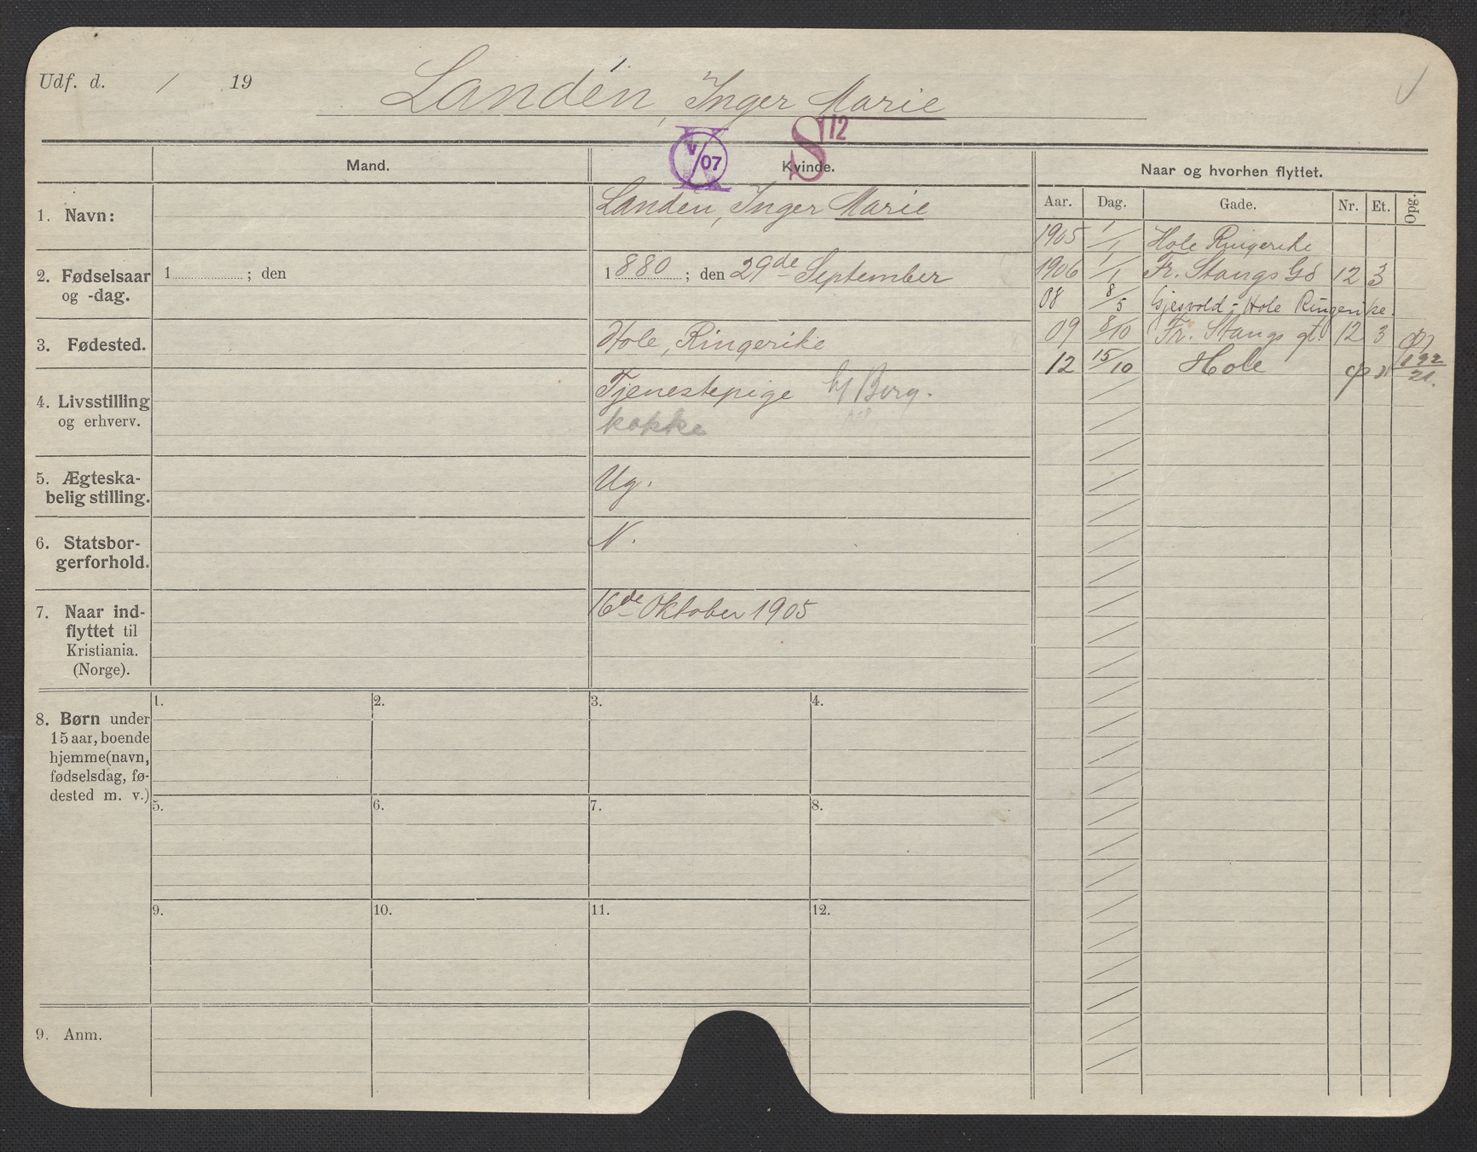 Udf. d. / 19
Landén, Inger Marie
V/07
S 12
Mand.
Kvinde.
Naar og hvorhen flyttet.
Aar. Dag. Gade. Nr. Et. Opg.
1. Navn:
Landén, Inger Marie
2. Fødselsaar
og -dag.
1 ; den
1880 ; den 29de September
3. Fødested.
Hole, Ringerike
4. Livsstilling
og erhverv.
Tjenestepige h/ Borg.
kokke
5. Ægteska-
belig stilling.
Ug.
6. Statsbor-
gerforhold.
N.
7. Naar ind-
flyttet til
Kristiania.
(Norge).
16de Oktober 1905
8. Børn under
15 aar, boende
hjemme (navn,
fødselsdag, fø-
dested m. v.)
1. 2. 3. 4.
5. 6. 7. 8.
9. 10. 11. 12.
9. Anm.
1905 1/1 Hole Ringerike
1906 1/1 Fr. Stangs Gd 12 3
08 8/5 Gjesvold - Hole Ringerike.
09 8/10 Fr. Stangs gt 12 3
12 15/10 Hole 192/21.